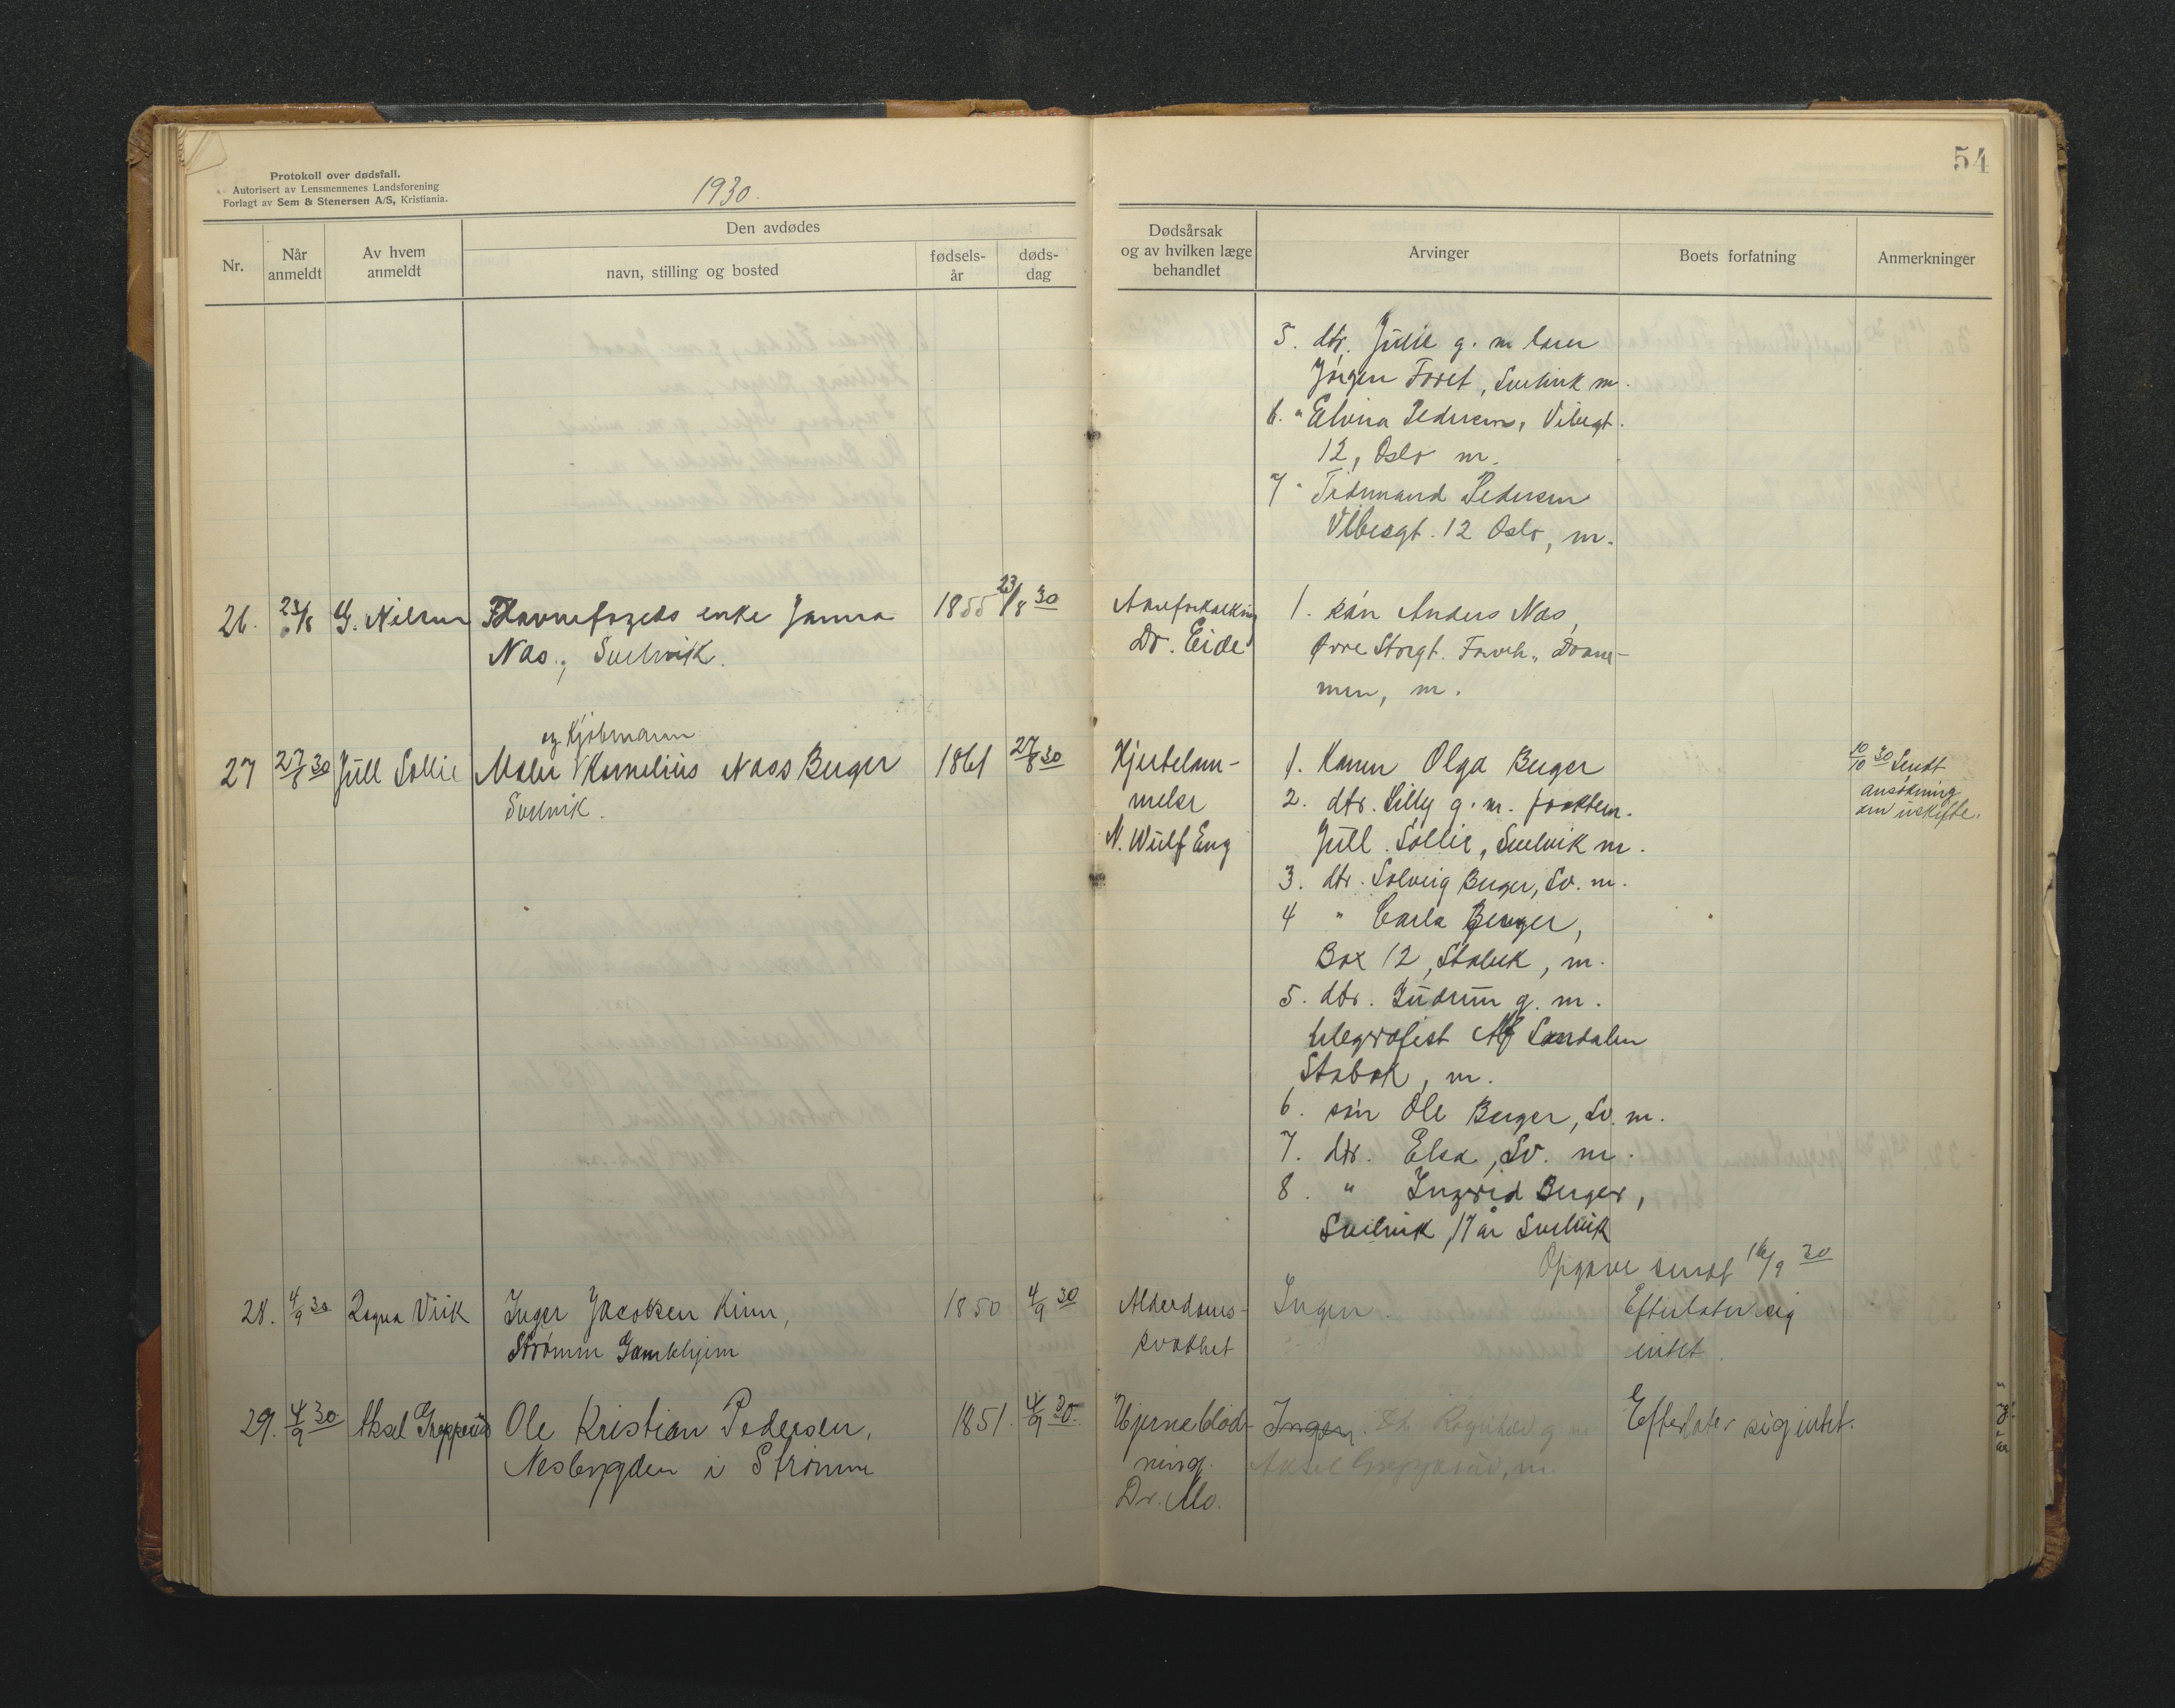 Protokoll over dødsfall.
Autorisert av Lensmennenes Landsforening
Forlagt av Sem & Stenersen A/S, Kristiania.
1930.
54
Nr.
Når anmeldt
Av hvem anmeldt
Den avdødes
navn, stilling og bosted
fødsels-år
døds-dag
Dødsårsak
og av hvilken læge
behandlet
Arvinger
Boets forfatning
Anmerkninger
5. dtr. Julie g. m
Jørgen, Svelvik m.
6. " Elvira Pedersen,
12, Oslo m.
7 " Pedersen
Vibesgt. 12 Oslo, m.
26. 23/8 G. Nilsen Havnefogeds enke Janna 1855 23/8 30 Aareforkalkning 1. søn Anders Næs,
Næs, Svelvik. Dr. Eide Øvre Storgt. Dram-
men, m.
og Kjøbmann
27 27/8 30 Jull Sollie Maler Kornelius Naas Berger 1861 27/8 30 Hjertelam- 1. Konen Olga Berger 10/10 30 Sendt
Svelvik. melse 2. dtr. Lilly g. m. ansøkning
N. Wulf Eng Jull Sollie, Svelvik m. om uskifte.
3. dtr. Solveig Berger, Sv. m.
4 " Carla Berger,
Box 12, Stabek, m.
5. dtr. Gudrun g. m.
telegrafist Alf Sandalen
Stabæk, m.
6. søn Ole Berger, Sv. m.
7. dtr. Elsa, Sv. m.
8. " Ingrid Berger,
Svelvik 17 år Svelvik
Opgave sendt 16/9 30
28. 4/9 30 Ragna Viik Inger Jacobsen Kinn, 1850 4/9 30 Alderdoms- Ingen. Efterlater sig
Strømm Gamlehjem svakhet intet.
29. 4/9 30 Aksel Greppsrud Ole Kristian Pedersen, 1851. 4/9 30. Hjerneblød- Ingen. Dtr. Ragnhild g m Efterlater sig intet.
Nesbygden i Strømm ning. Aksel Greppsrud, m.
Dr. Mo.